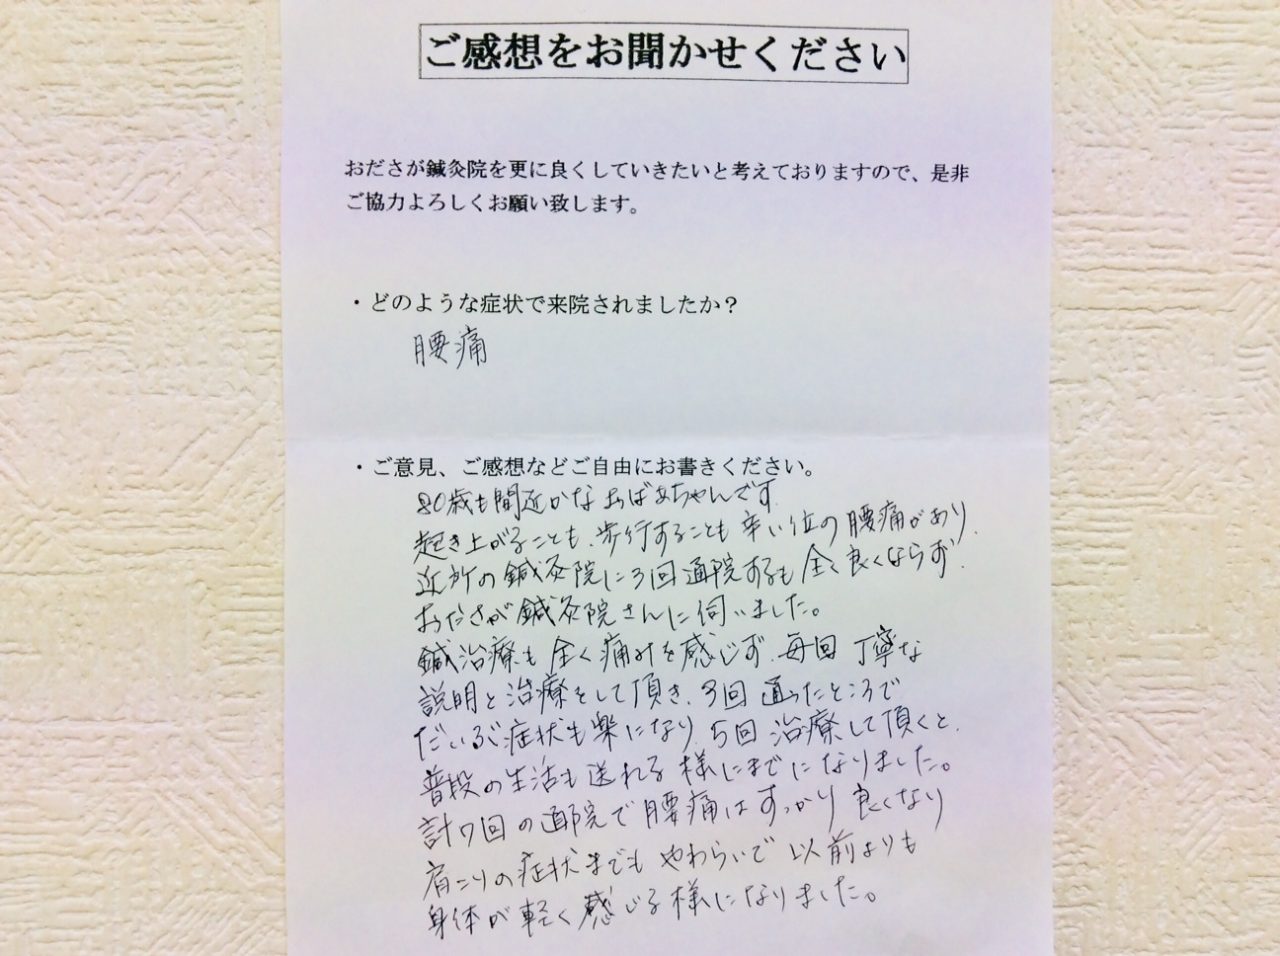 ご感想をお聞かせください
おださが鍼灸院を更に良くしていきたいと考えておりますので、是非
ご協力よろしくお願い致します。
・どのような症状で来院されましたか？
腰痛
・ご意見、ご感想などご自由にお書きください。
80歳も間近かなおばあちゃんです
起き上がることも、歩行することも辛い位の腰痛があり、
近所の鍼灸院に3回通院するも全く良くならず、
おださが鍼灸院さんに伺いました。
鍼治療も全く痛みを感じず、毎回丁寧な
説明と治療をして頂き、3回通ったところで
だいぶ症状も楽になり、5回治療して頂くと、
普段の生活も送れる様にまでになりました。
計7回の通院で腰痛はすっかり良くなり
肩こりの症状までもやわらいで以前よりも
身体が軽く感じる様になりました。